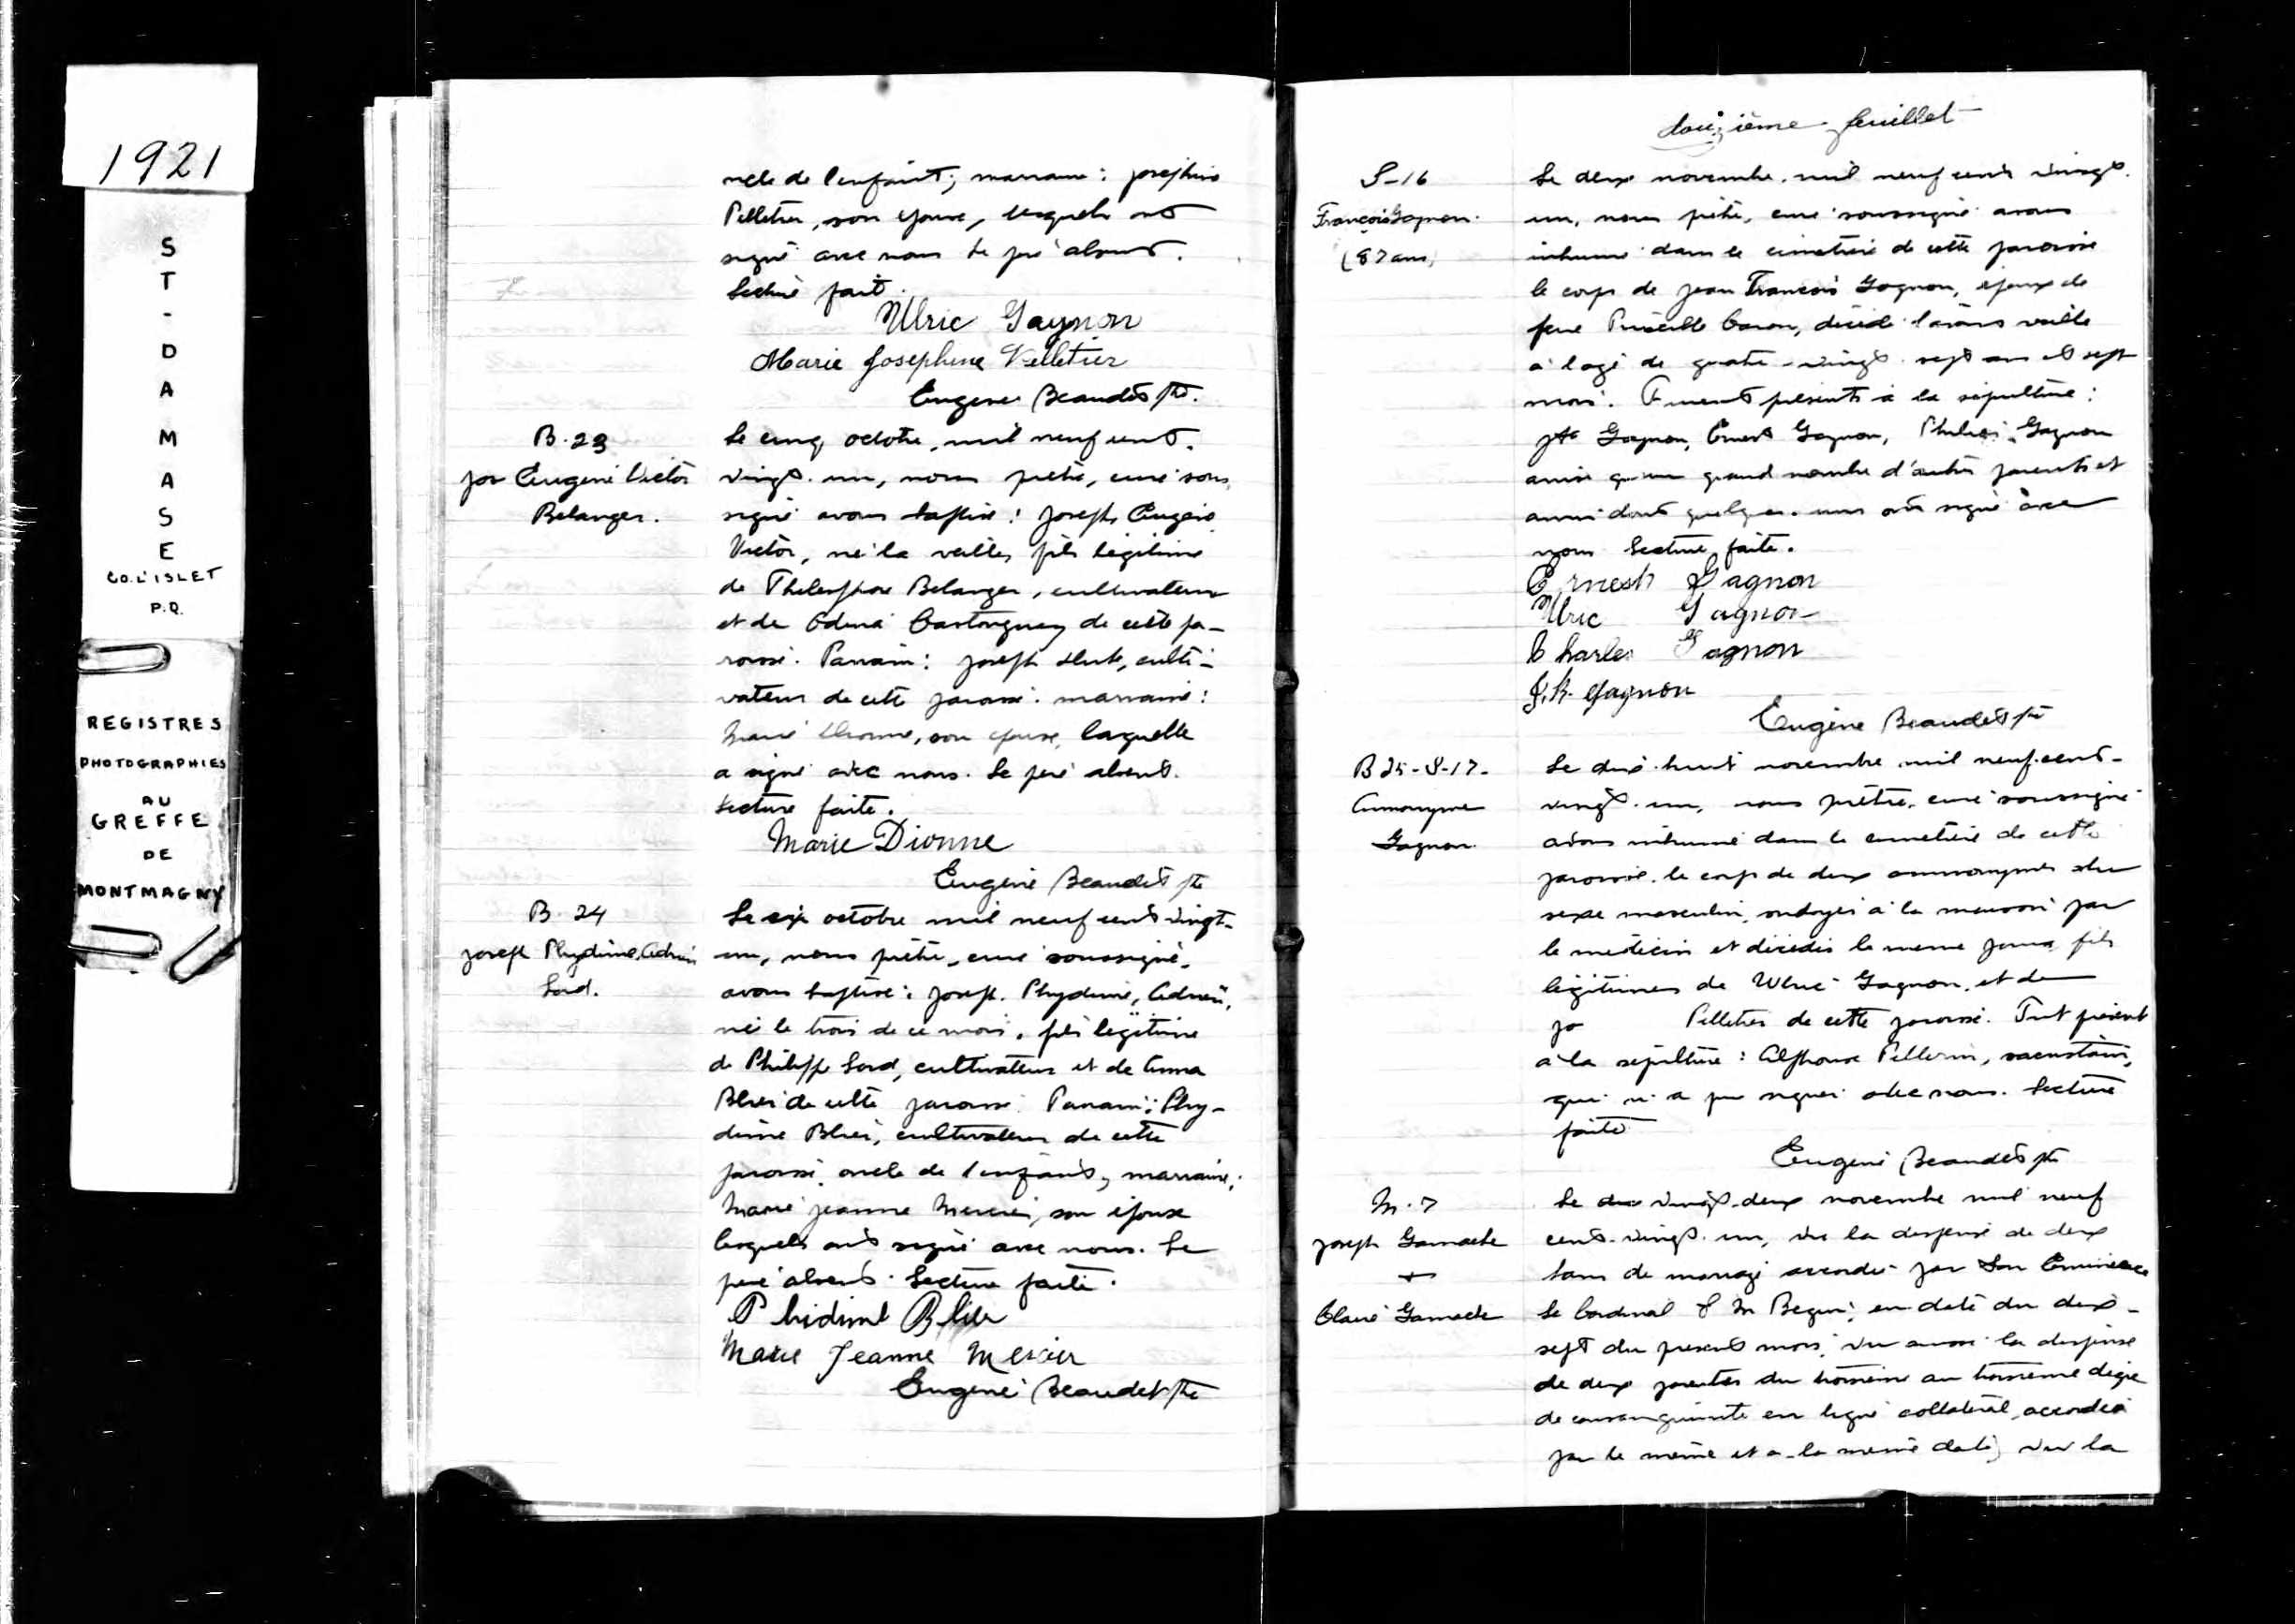 1921
ST-DAMASE
CO. L'ISLET
P.Q.
REGISTRES
PHOTOGRAPHIES
AU
GREFFE
DE
MONTMAGNY
ncle de l'enfant; marraine: Josephine
Pelletier, son épouse, lesquels ont
signé avec nous le père absent.
Lecture faite.
Ulric Gagnon
Marie Josephine Pelletier
Eugene Beaudet ptre.
B. 23
Jos Eugène Victor
Belanger.
Le cinq octobre, mil neuf cent.
vingt. un, nous prêtre, curé sous
signé avons baptisé: Joseph Eugène
Victor, né la veille, fils légitime
de Thelesphore Belanger, cultivateur
et de Edma Castonguay de cette pa-
roisse. Parrain: Joseph culti-
vateur de cette paroisse. marraine:
Marie Dionne, son épouse, laquelle
a signé avec nous. Le père absent.
Lecture faite.
Marie Dionne
Eugène Beaudet ptre
B. 24
Joseph Phydime, Adrien
Lord.
Le six octobre mil neuf cent vingt-
un, nous prêtre, curé soussigné,
avons baptisé: Joseph. Phydime, Adrien,
né le trois de ce mois. fils légitime
de Philippe Lord, cultivateur et de Anna
Blier de cette paroisse. Parrain: Phy-
dime Blier, cultivateur de cette
paroisse, oncle de l'enfant, marraine:
Marie Jeanne Mercier, son épouse
lesquels ont signé avec nous. Le
père absent. Lecture faite.
Phidime Blier
Marie Jeanne Mercier
Eugène Beaudet ptre
douzième feuillet
S-16
François Gagnon.
(87 ans)
Le deux novembre. mil neuf cent vingt.
un, nous prêtre, curé soussigné avons
inhumé dans le cimetière de cette paroisse
le corps de Jean François Gagnon, époux de
feue Priscille Caron, décédé l'avant veille
à l'age de quatre-vingt. sept ans et sept
mois. Furent présents à la sépulture:
Jte Gagnon, Ernest Gagnon, Gagnon
ainsi qu'un grand nombre d'autres parents et
amis dont quelques. uns ont signé avec
nous Lecture faite.
Ernest Gagnon
Ulric Gagnon
Charles Gagnon
J.B. Gagnon
Eugène Beaudet ptre
B 25-S-17-
Annonyme
Gagnon.
Le dix. huit novembre mil neuf. cent-
vingt. un, nous prêtre, curé soussigné
avons inhumé dans le cimetière de cette
paroisse. le corps de deux annonymes du
sexe masculin, ondoyés à la maison par
le médecin et décédés le meme jour, fils
légitimes de Ulric Gagnon, et de
Jo Pelletier de cette paroisse. Fut présent
à la sépulture: Alphonse Pellerin, sacristain,
qui n'a pu signer avec nous. Lecture
faite
Eugène Beaudet ptre
M. 7
Joseph Gamache
+
Claire Gamache
Le vingt-deux novembre mil neuf
cent. vingt. un, vu la dispense de deux
bans de mariage accordée par Son Eminence
le Cardinal Begin, en date du dix-
sept du présent mois, vu aussi la dispense
de deux parentés du troisième au troisième degré
de consanguinité en ligne collatéral, accordée
par le même et a la même date, vu la